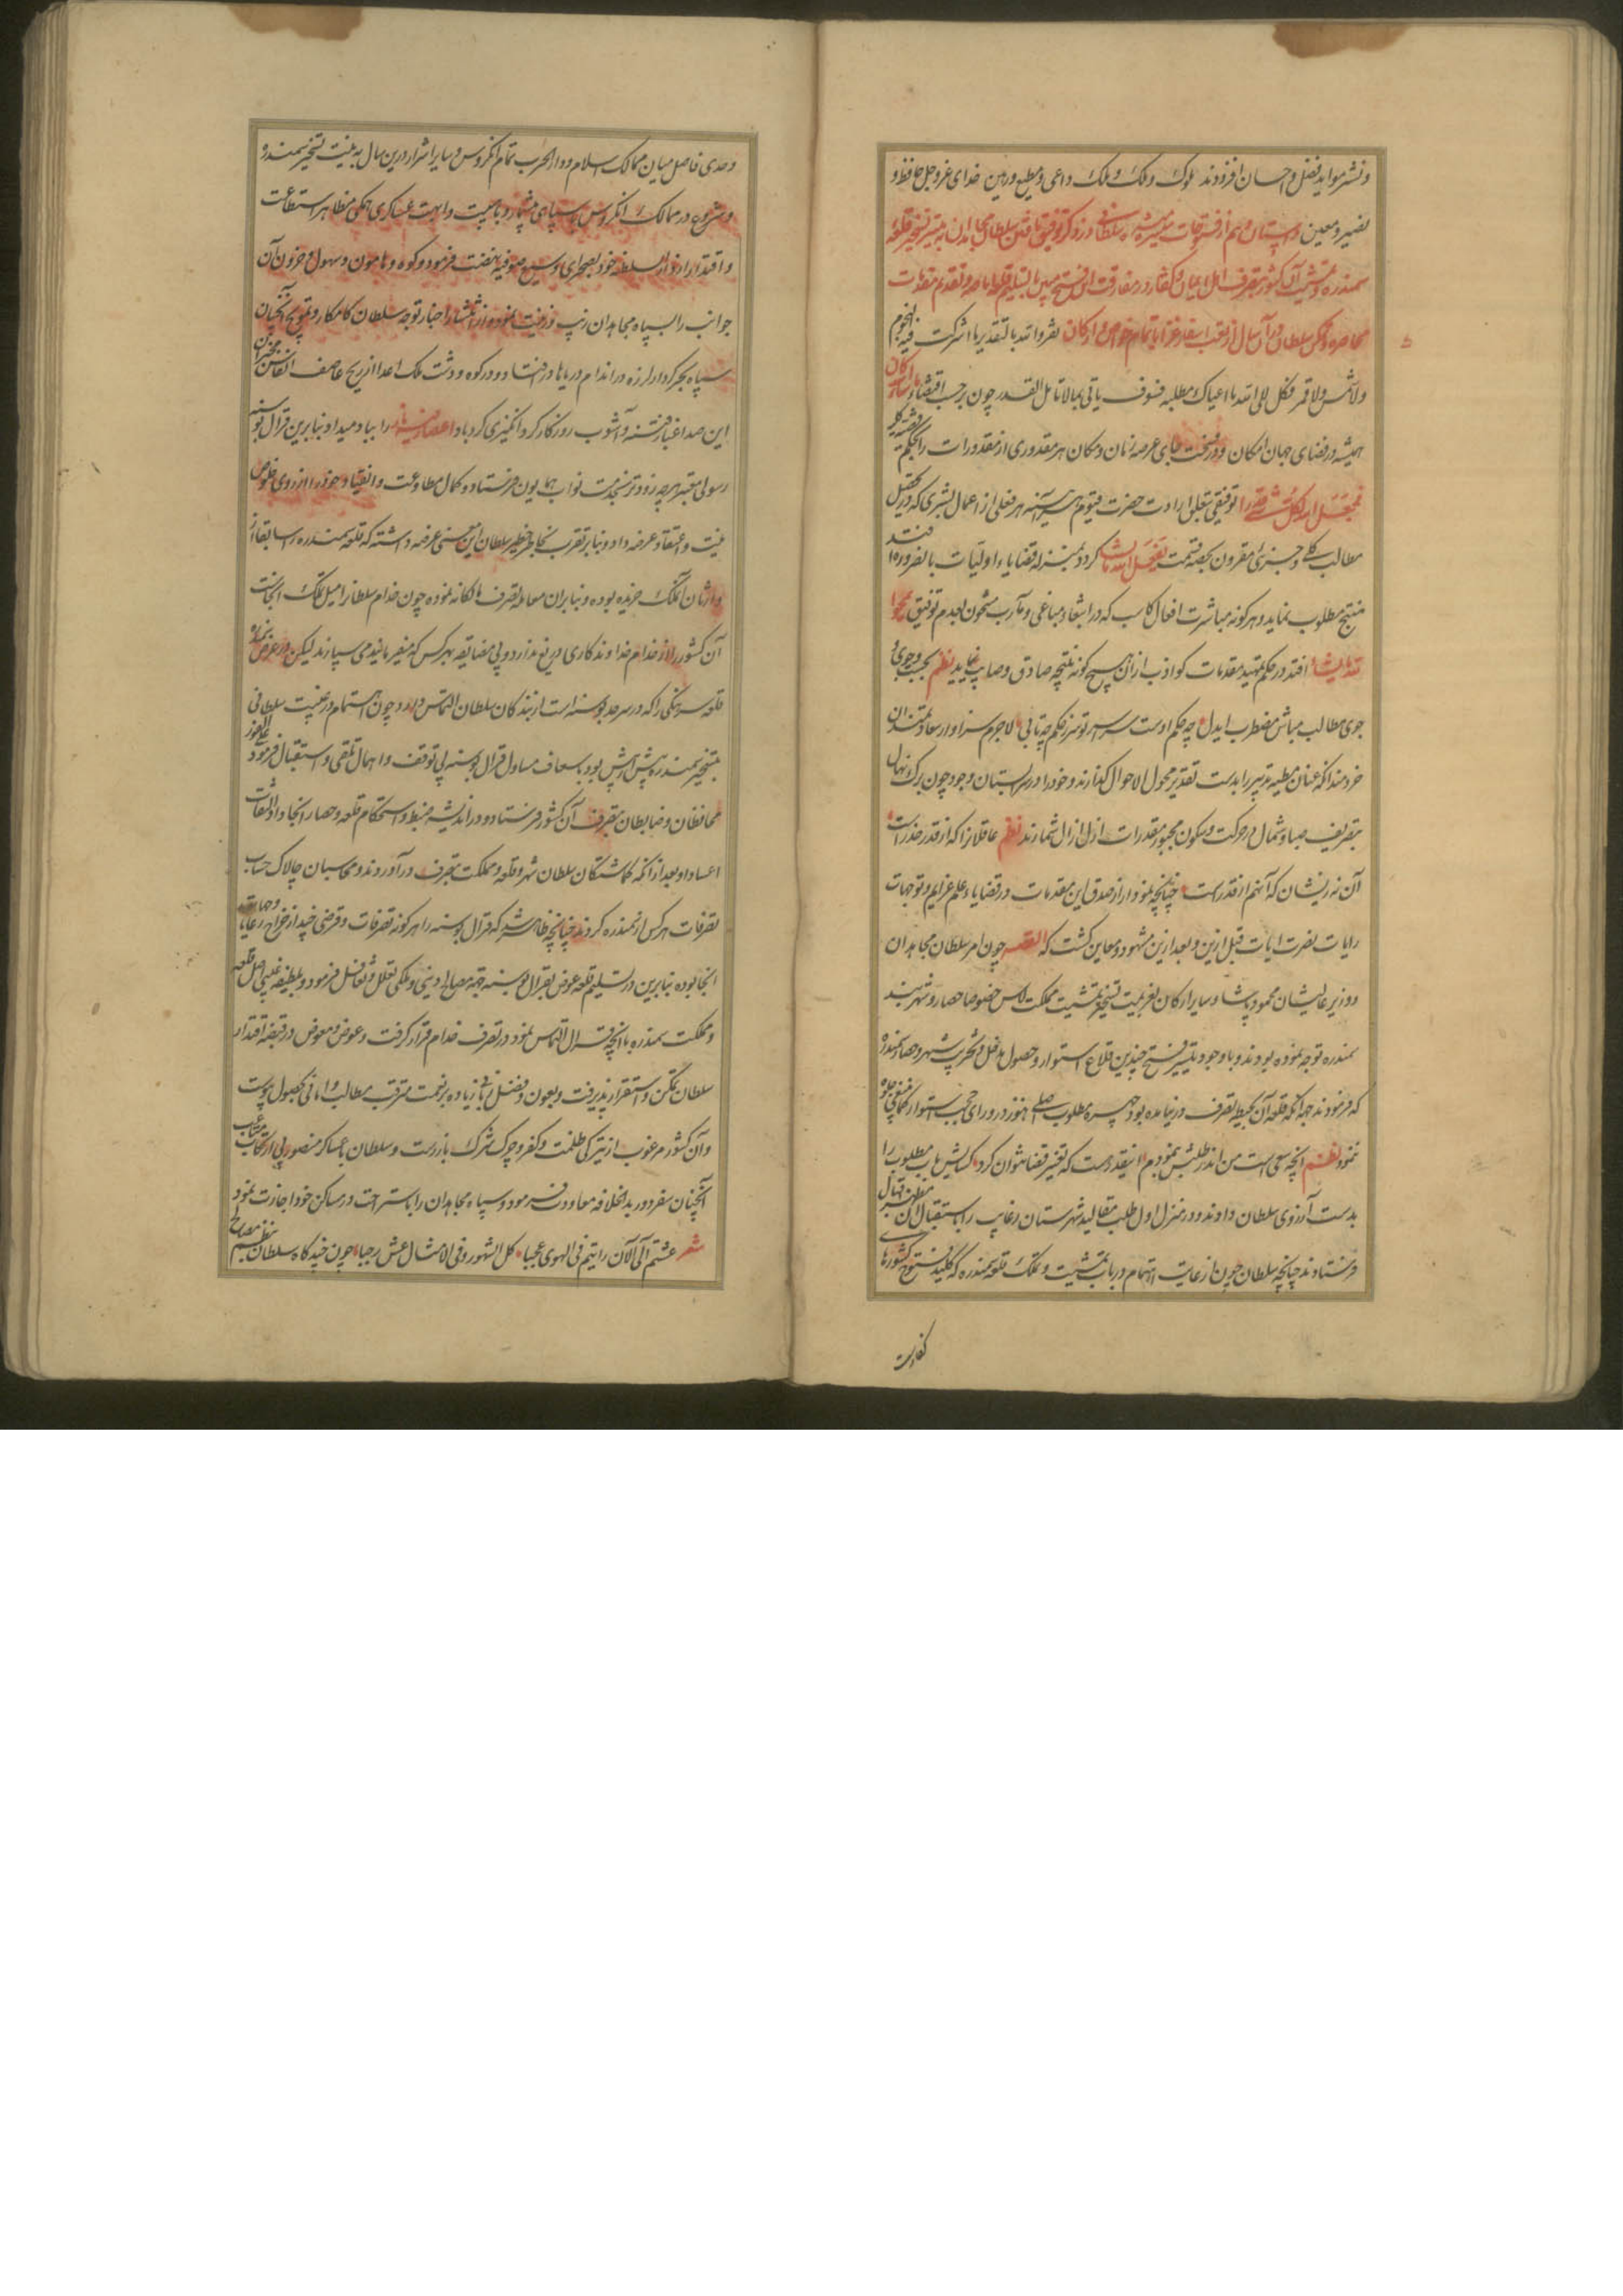 و نشر مواید فضل و احسان افزودند ملوک و ملک و ملک داعی و مطیع و رهین خدای عز و جل حافظ و
نصیر و معین داستان دهم از فتوحات سلطانی در ذکر توفیق یافتن سلطان مجاهدان به تیسیر تسخیر قلعه
سمندره و تمشیت آن کشور بتصرف اهل ایمان و کفار در مفارقت این فتح مبین بالتسلیم قلعه و تقدیم مقدمات
محاصره و تمکن سلطان در آن سال از تعب اسفار غزا با تمام خواص و ارکان نفر و الله بالتقدیر ما اشرکت فیه النجوم
ولا شمس ولا قمر فکل الی الله ما اعیاک مطلبه فسوف یاتی بما لا تامل القدر چون بر حسب اقتضاء
همیشه در فضای جهان امکان و در فسحت جای عرصه زمان و مکان هر مقدوری از مقدورات را بحکم
فجعل الله لکل شی قدرا توفیقی بتعلق ارادت حضرت قیوم هر آینه هر فعلی از اعمال بشری که در تحصیل
مطالب کلی و جزئی مقرون بحصه قسمت یفعل الله ما یشاء کردد بمنزله قضایاء اولیات بالضروره
منتج مطلوب نماید و هر کونه مباشرت افعال کاسب که در ابتغاء مباغی و مآرب مشحون بعدم توفیق
افتد در حکم تمهید مقدمات کواذب از آن هیچ کونه نتیجه صادق و صایب نیاید نظم بجست و جوی و
جوی مطالب مباش مضطرب ای دل چه حکم اوست سر از تو سر ز حکم چه تابی لاجرم سزاوار سعادتمندان
خردمند آنکه عنان مطیه تدبیر را بدست تقدیر محول الاحوال کذارند و خود را در سرابستان وجود چون برک نهال
بتصریف صبا و شمال در حرکت و سکون مجبور مقدرات ازل ازال شمارند نظم عاقلان را که از قدر حذر است
آن نه زیشان که آنهم از قدر است چنانچه نمودار از صدق این مقدمات در قضایاء علم عزایم و توجهات
رایات نصرت ایات قبل ازین و بعد ازین مشهود و معاین کشت که القصه چون امر سلطان مجاهدان
و وزیر عالیشان محمود پاشا و سایر ارکان بعزیمت تسخیر و تمشیت مملکت لاس خصوصا حصار و شهر بند
سمندره توجه نموده بودند و با وجود تیسیر فتح چندین قلاع استوار و حصول مدخل و تخریب شهر و حصار سمندره
که فرمودند جهه انکه قلعه آن بحیطه تصرف در نیامده بود چهره مطلوب اصلی هنوز در ورای حجب استوار
نمود نظم انچه سعی است من اندر طلبش بنمودم اینقدر هست که تغییر قضا نتوان کرد کشایش باب مطلوب را
بدست آرزوی سلطان دادند و در منزل اول طلب مقالید شهرستان رغایب را باستقبال آن
فرستادند چنانچه سلطان چون از غایت اهتمام در باب تمشیت و تملک قلعه سمندره که کلید فتح کشورها
کفارست
وحدی فاصل میان ممالک اسلام و دار الحرب تمام انکروس و سایر اشرار درین سال به نیت تسخیر سمندره
و شروع در ممالک انکروس با سپاهی بیشمار و با هیبت و ابهت عسکری همکی مظاهر استطاعت
و اقتدار از دار السلطنه خود بصحرای وسیع صوفیه نهضت فرمود و کوه و هامون و سهول و حزون آن
جوانب را بسپاه مجاهدان زیب و زینت نموده از انتشار اخبار توجه سلطان کامکار و تموج آنچنان
سپاه بحر کردار لرزه در اندام دریاها در افتاد و در کوه و دشت ملک اعدا از ریح عاصف انفاس
این صدا غبار فتنه و آشوب روزکار کرد انکیزی کرد باد اعصار را بباد میداد بنابرین قرال بوسنه
رسولی معتبر هر چه زودتر بخدمت نواب همایون فرستاد و کمال مطاوعت و انقیاد خود را از روی خلوص
نیت و اعتقاد عرضه داد و بنابر تقرب بخاطر خطیر سلطان این معنی عرضه داشته که قلعه سمندره را سابقا از
وارثان آنملک خریده بوده و بنابران معامله تصرف مالکانه نموده چون خدام سلطانرا میل تملک آنجاست
آن کشور را از خدام خداوندکاری دریغ ندارد و بی مضایقه بهر کس که میفرمایند می سپارند لیکن در عوض
قلعه سرهنکی را که در سرحد بوسنه است از بندکان سلطان التماس دارد و چون اهتمام در نیت سلطانی
بتسخیر سمندره بیش از پیش بود باسعاف مساول قرال بوسنه بی توقف و اهمال تلقی و استقبال فرمود
محافظان و ضابطان بتصرف آن کشور فرستاد و در اندیشه ضبط و استحکام قلعه و حصار انجا داد التفات
و بعد از انکه کماشتکان سلطان شهر و قلعه و مملکت بتصرف در آوردند و محاسبان چالاک حساب
تصرفات هر کس از سمندره کردند چنانچه ظاهر شد که قرال بوسنه را هر کونه تصرفات و قرضی چند از خواج و رعایا
انجا بوده بنابرین در تسلیم قلعه عوض بقرال بوسنه جهه مصالح دینی و ملکی تعلل و تغافل فرمود و بلطیفه غیبی اصل قلعه
و مملکت سمندره با انچه قرال التماس نمود در تصرف خدام قرار کرفت و عوض و معوض در قبضه اقتدار
سلطان تمکن و استقرار پذیرفت و بعون و فضل ربانی زیاده بر نعمت مترقب مطالب و امانی بحصول پیوست
و آن کشور مرغوب از تیرکی ظلمت و کفر و چرک شرک باز رست و سلطان با عساکر منصور بی ارتکاب
آنچنان سفر دور بدار الخلافه معاودت فرمود و سپاه مجاهدان را باستراحت در مساکن خود اجازت نمود
شعر عشتم الی الآن رایتم فی الهوی عجبا کل الشهور و فی الامثال عش رجبا چون چند کاه سلطان